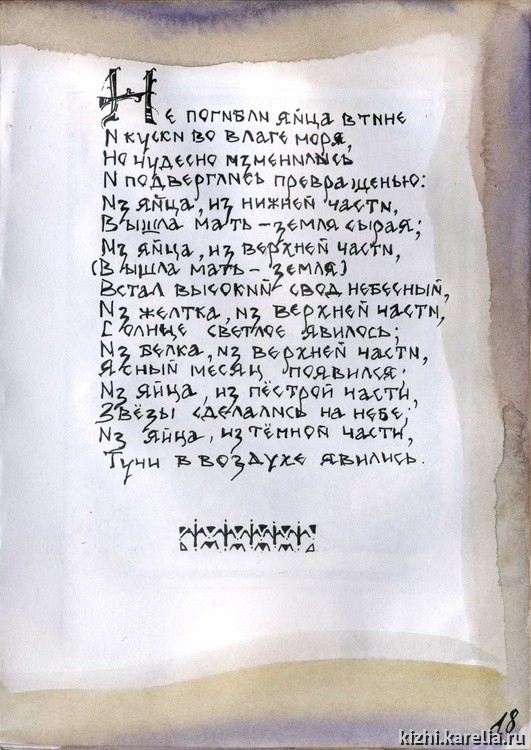 Не погибли яйца в тине
И куски во влаге моря,
Но чудесно изменились
И подверглись превращенью:
Из яйца, из нижней части,
Вышла мать – земля сырая;
Из яйца, из верхней части,
(Вышла мать – земля)
Встал высокий свод небесный,
Из желтка, из верхней части,
Солнце светлое явилось;
Из белка, из верхней части,
Ясный месяц появился;
Из яйца, из пёстрой части,
Звёзы сделались на небе;
Из яйца, из тёмной части,
Тучи в воздухе явились.
18
kizhi.karelia.ru